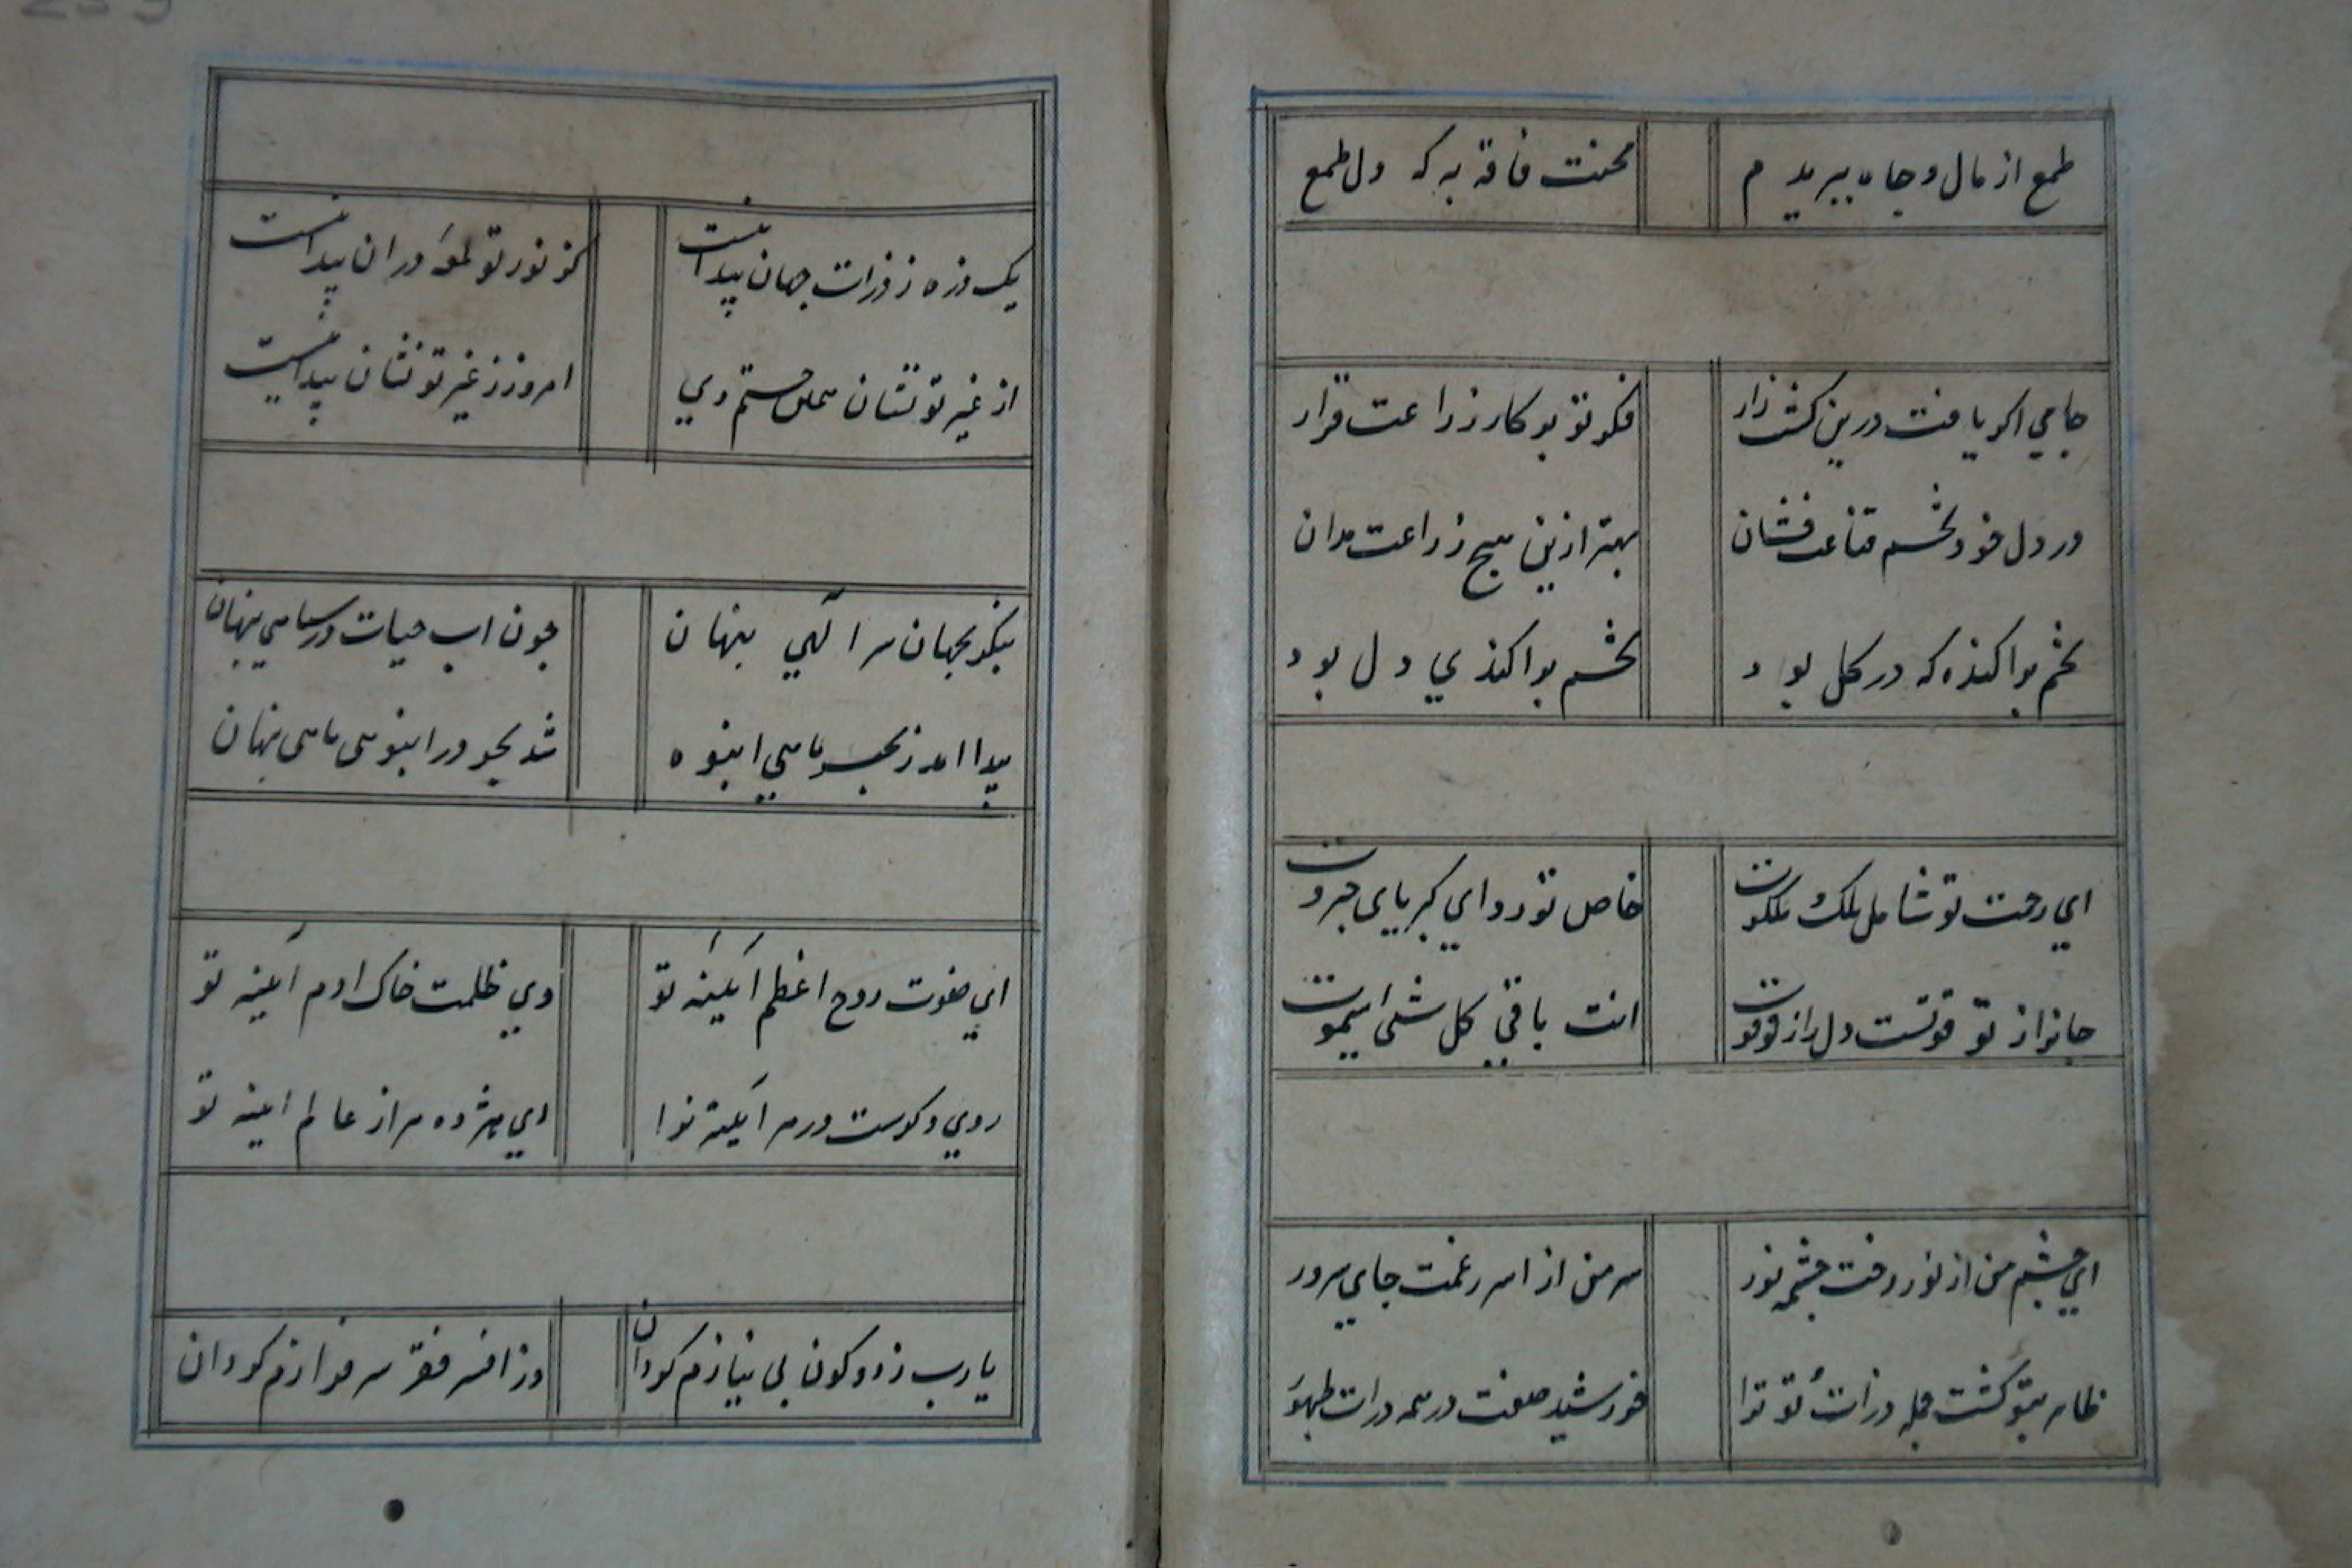 طمع از مال و جاه ببریدم محنت فاقه به که دل طمع
جامی اکر یافت درین کشت زار فکر تو بر کار زراعت قرار
در دل خود تخم قناعت فشان بهتر ازین هیچ زراعت مدان
تخم پراکنده که در کل بود تخم پراکندی دل بود
ای رحمت تو شامل ملک و ملکوت خاص تو ردای کبریای جبروت
جانرا ز تو قوتست دل را ز تو قوت انت باقی کل شی ایموت
ای چشم من از نور رخت چشمه نور سر من از اسر غمت جای سرور
ظاهر بتو کشت جمله ذرات تو ترا خورشید صفت در همه ذرات ظهور
یک ذره ز ذرات جهان پیدا نیست کز نور تو لمعه در ان پیدا نیست
از غیر تو نشان جستم دی امروز ز غیر تو نشان پیدا نیست
بنکر بجهان سر الهی پنهان چون اب حیات در سیاهی پنهان
پیدا امد ز بحر ماهی انبوه شد بحر در انبوهی ماهی پنهان
ای صفوت روح اعظم آیینه تو وی ظلمت خاک ادم آیینه تو
روی دکرست در هر آیینه ترا ای هژده هزار عالم ایینه تو
یا رب ز دو کون بی نیازم کردان وز افسر فقر سرفرازم کردان